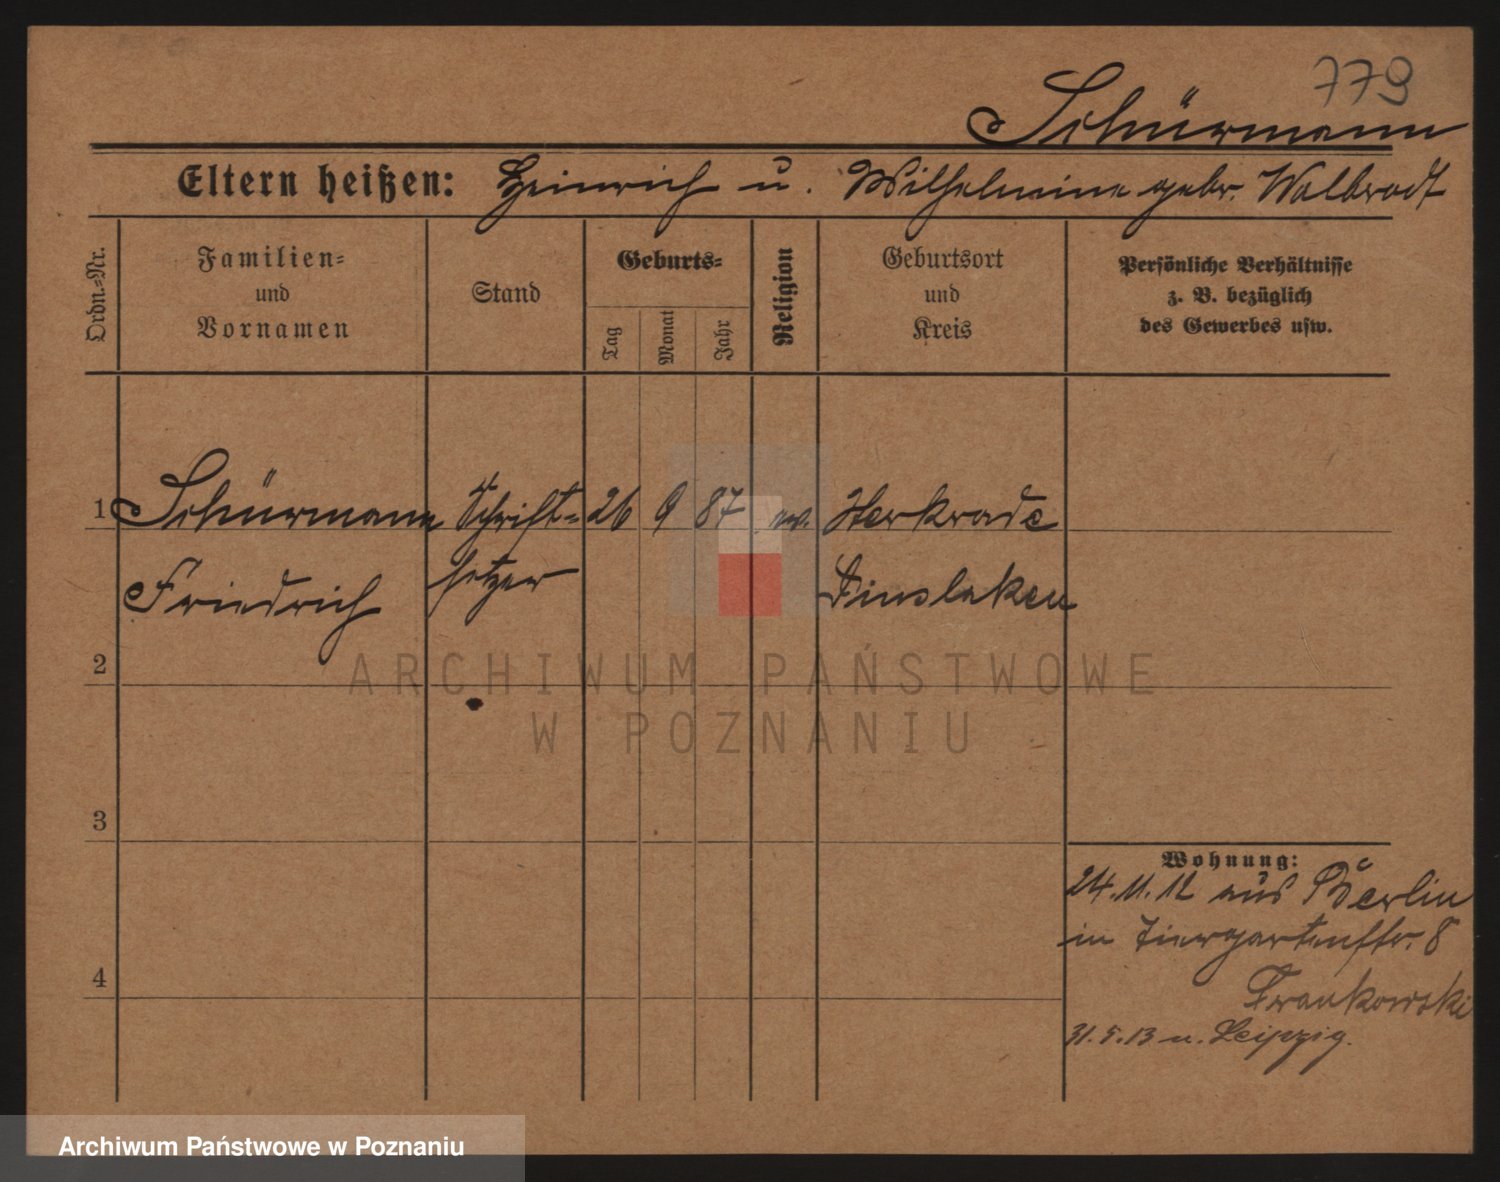 779
Schürmann
Eltern heißen: Heinrich u. Wilhelmine gebr. Walbrodt
Ordn.-Nr.
Familien-
und
Vornamen
Stand
Geburts-
Tag
Monat
Jahr
Religion
Geburtsort
und
Kreis
Persönliche Verhältnisse
z. B. bezüglich
des Gewerbes usw.
1 Schürmann Schrift- 26 9 87 ev. Sterkrade
Friedrich setzer Dinslaken
2
ARCHIWUM PAŃSTWOWE
W POZNANIU
3
Wohnung:
24.11.12 aus Berlin
in Tiergartenstr. 8
4
Frankowski
31.5.13 n. Leipzig.
Archiwum Państwowe w Poznaniu